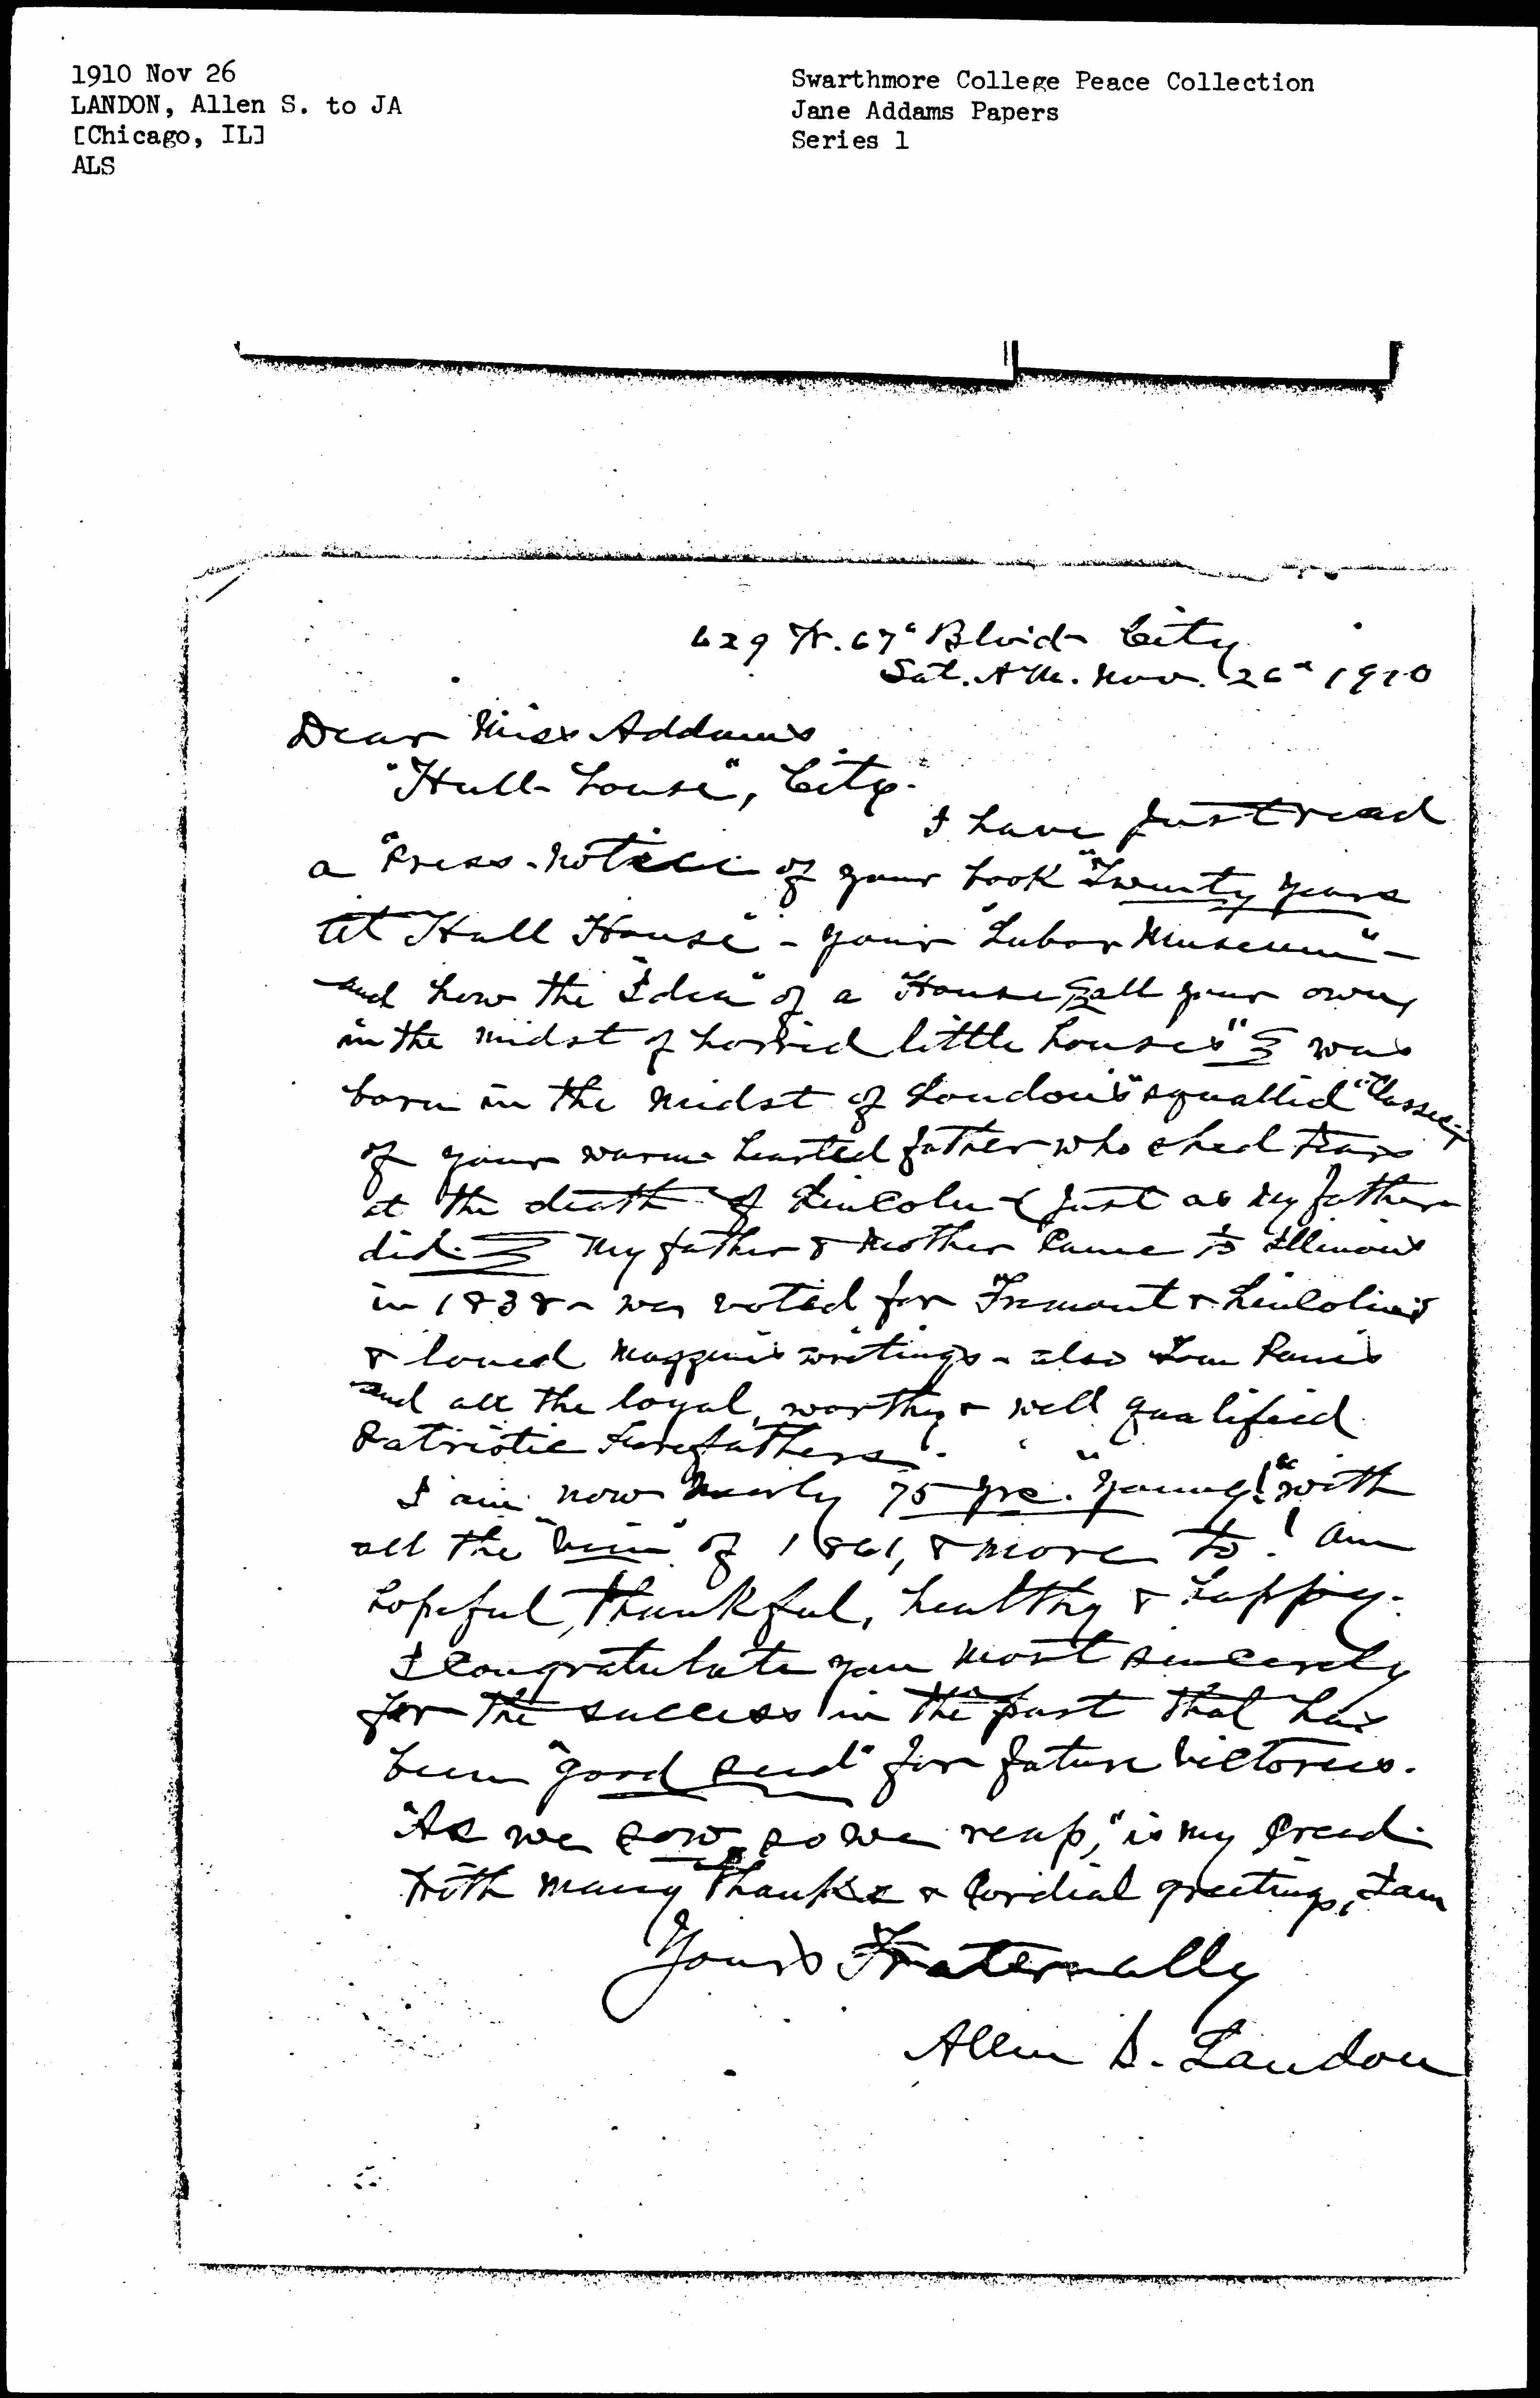 1910 Nov 26
LANDON, Allen S. to JA
[Chicago, IL]
ALS
Swarthmore College Peace Collection
Jane Addams Papers
Series 1
629 W. 67" Blvd- City
Sat. AM. Nov. 26" 1910
Dear Miss Addams
"Hull-house", City.
I have just read
a "Press-notice of your book "Twenty years
at Hull House" - your "Labor Museum" -
and how the "Idea" of a House all your own,
in the midst of horrid little houses" was
born in the midst of London's "squallid" Classes -
of your warm hearted father who shed tears
at the death of Lincoln (just as my father
did. My father & Mother Came to Illinois
in 1838 - voted for Fremont & Lincoln
& loved Mazzini's writings - also Tom Paine's
and all the loyal, worthy & well qualified
Patriotic Forefathers.
I am now nearly 75 yrs. "young"! with
all the "vim" of 1861, & more to! am
hopeful, thankful, healthy & happy.
I Congratulate you most sincerely
for the success in the past that has
been "good seed" for future victories.
"As we sow, so we reap," is my Creed.
With many thanks & Cordial greetings, I am
Yours Fraternally
Allen S. Landon